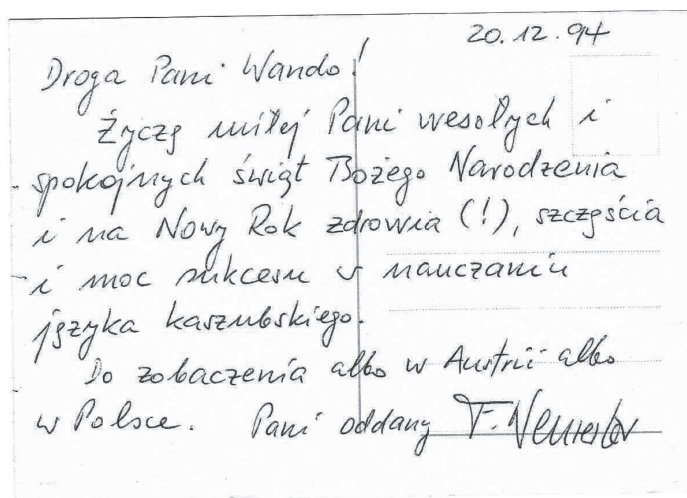 20.12.94
Droga Pani Wando!
Życzę miłej Pani wesołych i
spokojnych świąt Bożego Narodzenia
i na Nowy Rok zdrowia (!), szczęścia
i moc sukcesu w nauczaniu
języka kaszubskiego.
Do zobaczenia albo w Austrii albo
w Polsce. Pani oddany F.